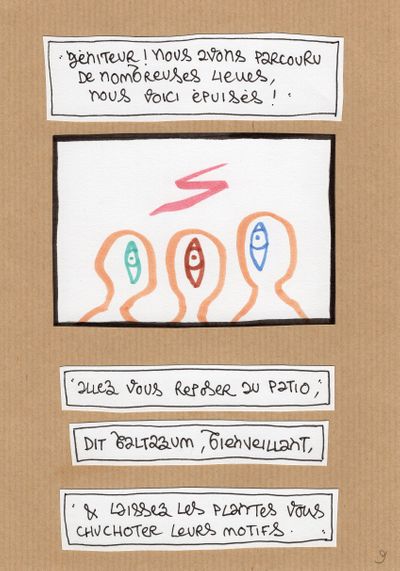 "Géniteur ! nous avons parcouru
de nombreuses lieues,
nous voici épuisés !"
"allez vous reposer au patio,"
dit Baltazaum, bienveillant,
"& laissez les plantes vous
chuchoter leurs motifs."
9